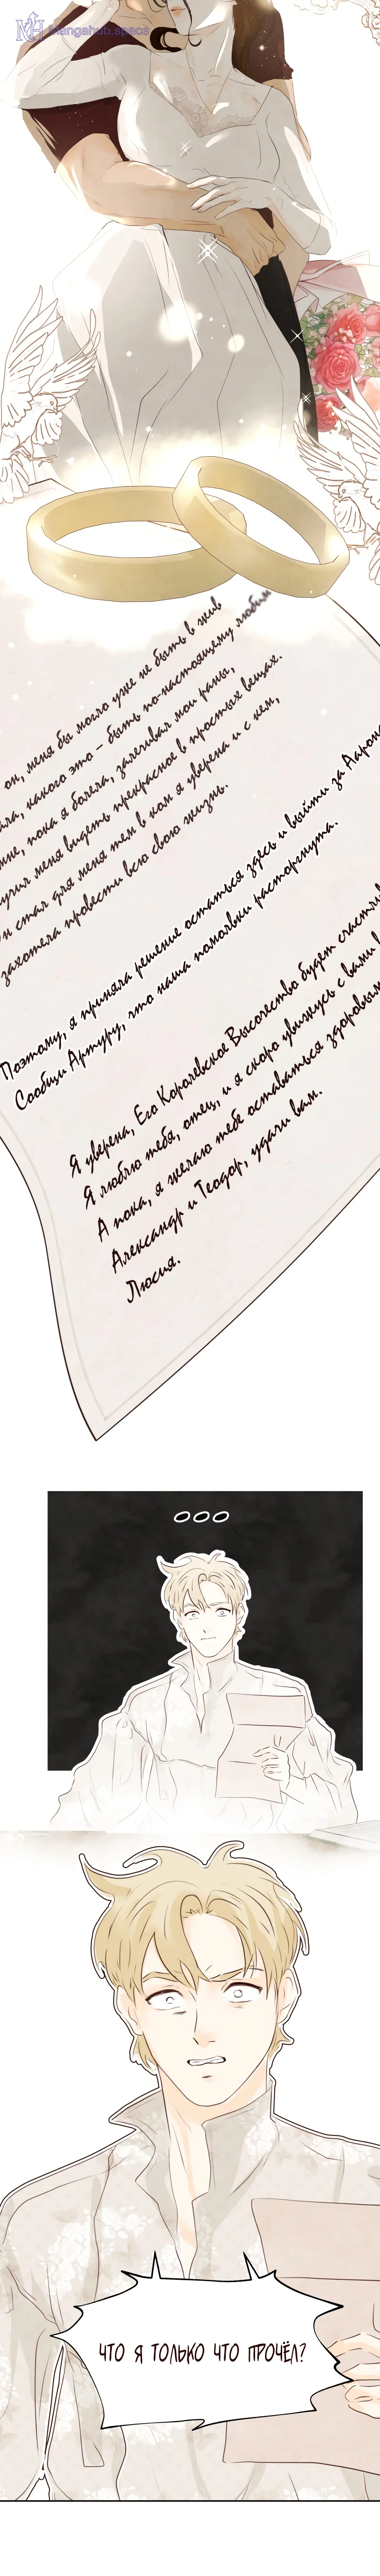 Mangahub.space
он, меня бы могло уже не быть в жив
ала, какого это - быть по-настоящему любим
мне, пока я болела, залечивал мои раны,
учил меня видеть прекрасное в простых вещах.
Он стал для меня тем в ком я уверена и с кем,
захотела провести всю свою жизнь.
Поэтому, я приняла решение остаться здесь и выйти за Аарона
Сообщи Артуру, что наша помолвка расторгнута.
Я уверена, Его Королевское Высочество будет счастлив
Я люблю тебя, отец, и я скоро увижусь с вами в
А пока, я желаю тебе оставаться здоровым
Александр и Теодор, удачи вам.
Люсия.
ооо
ЧТО Я ТОЛЬКО ЧТО ПРОЧЁЛ?